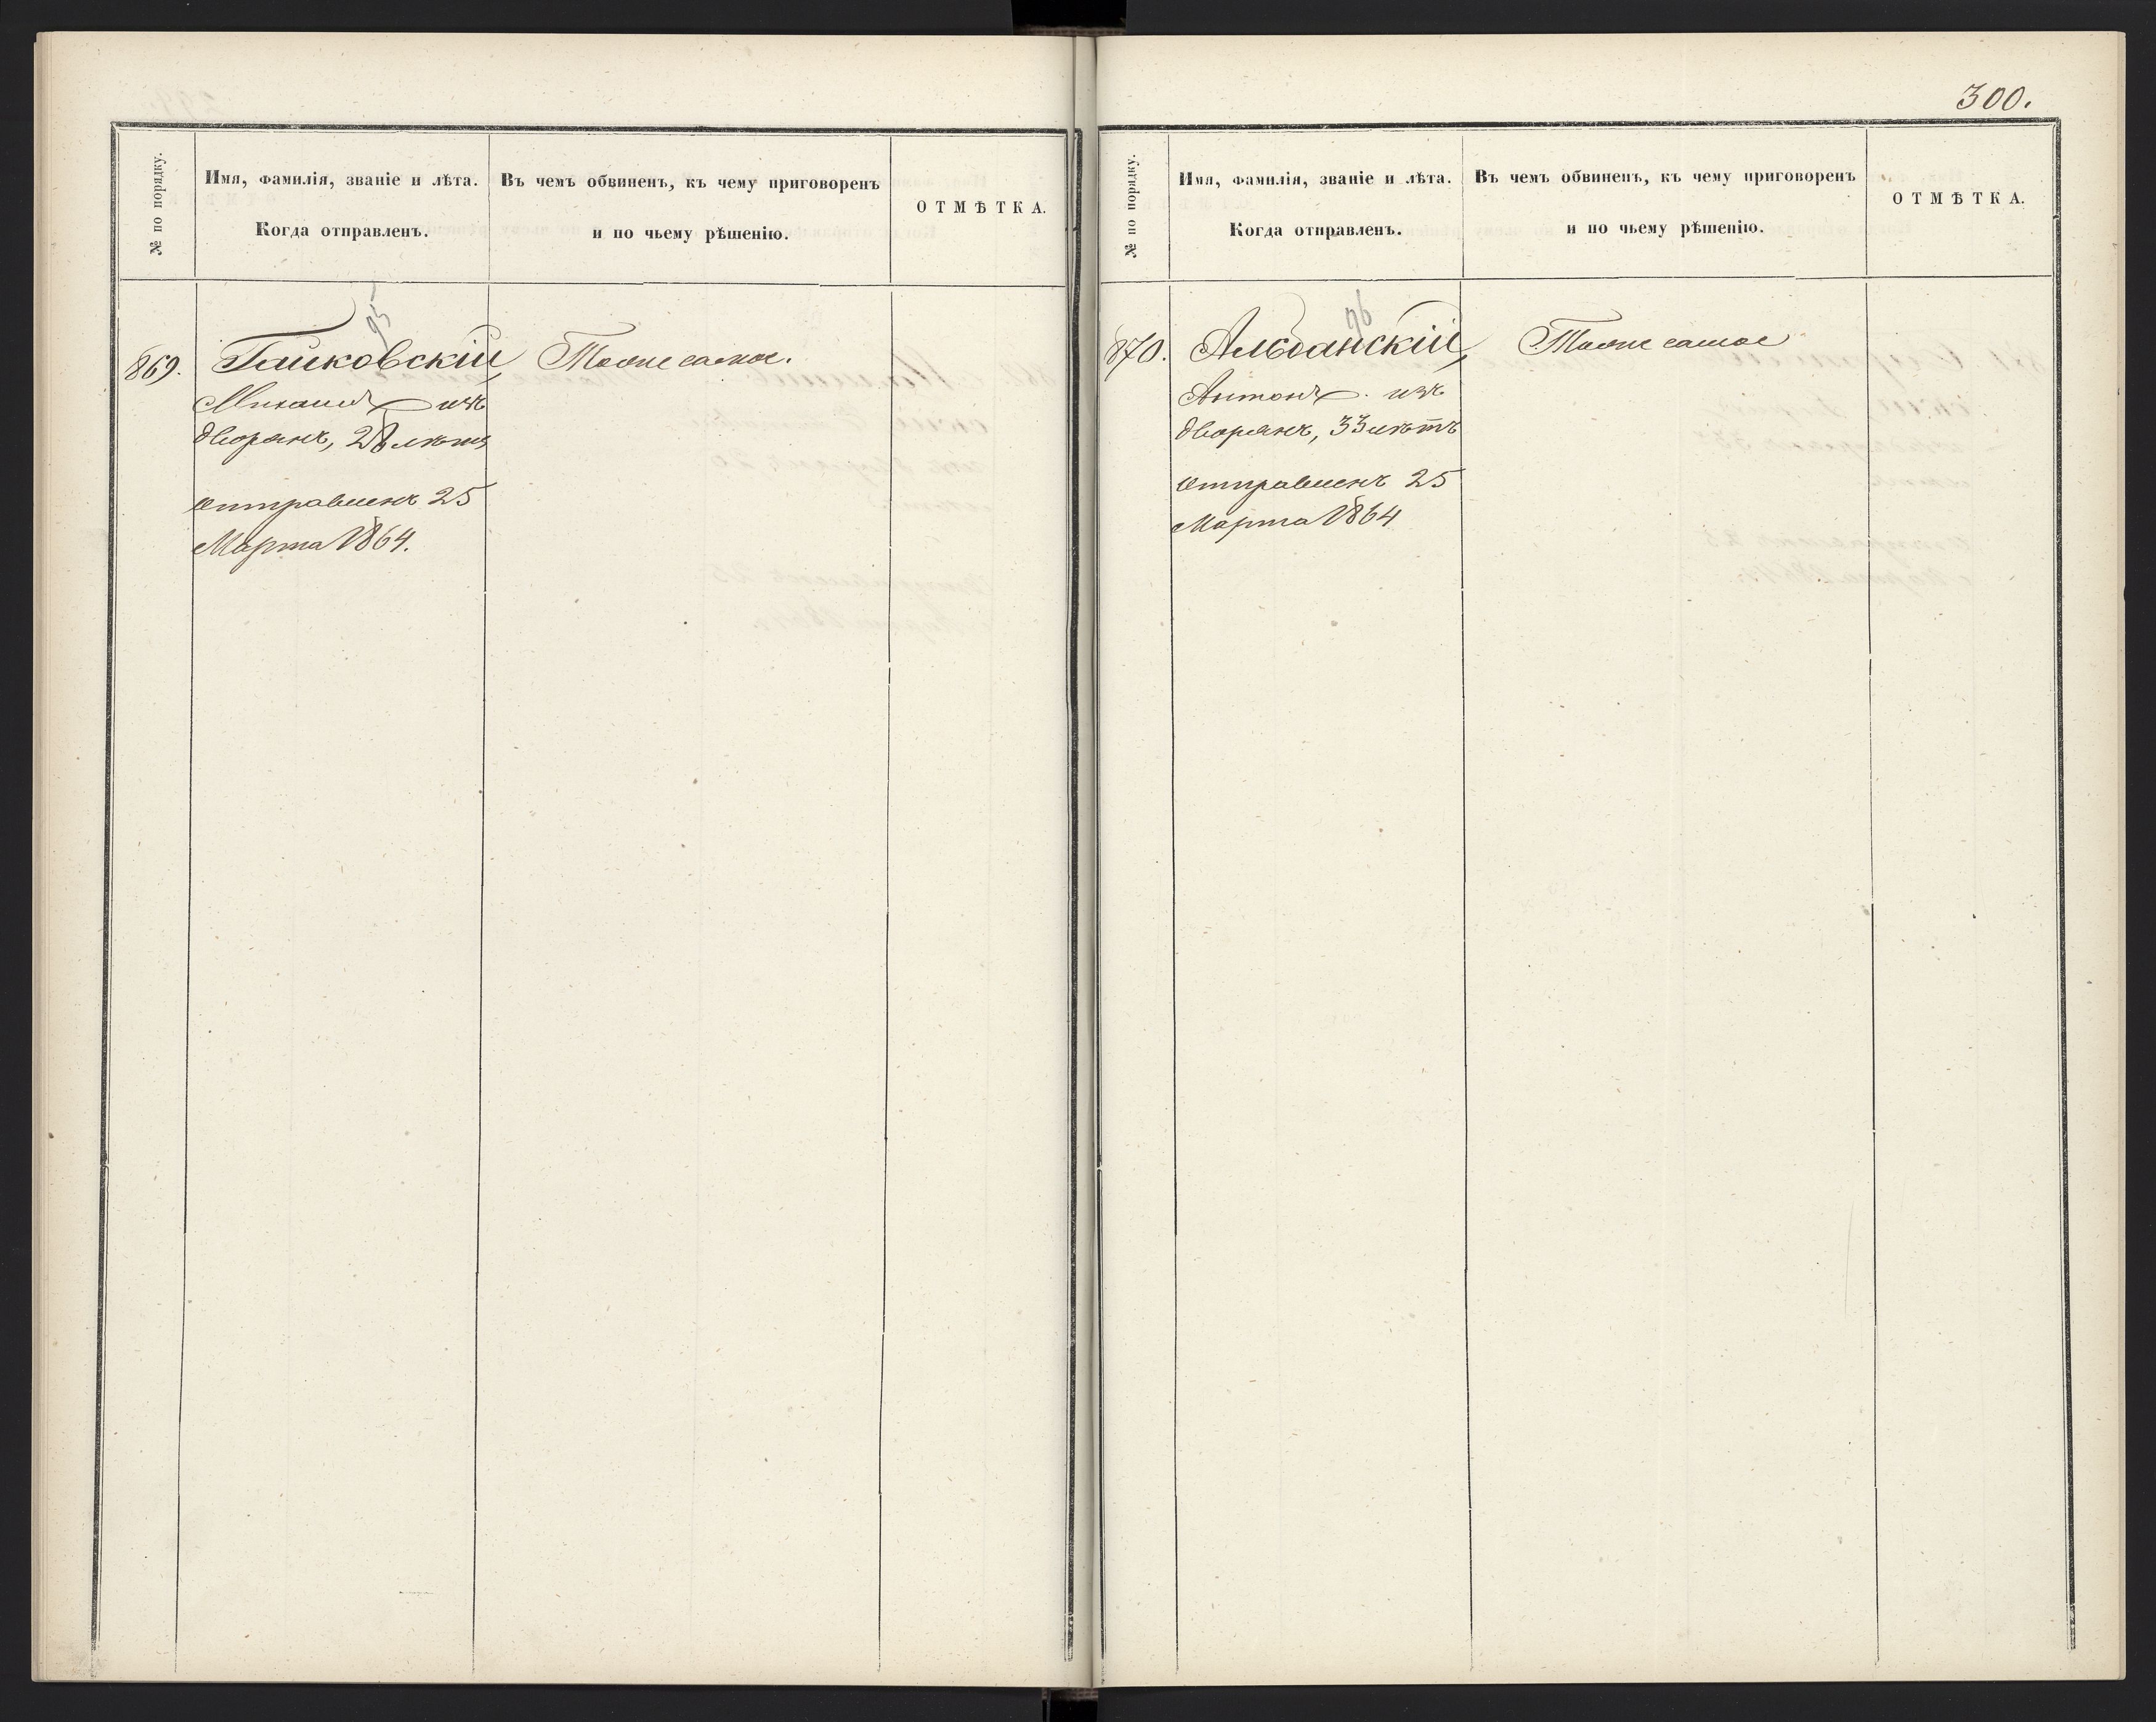 № по порядку.
Имя, фамилія, званіе и лѣта.
Когда отправленъ.
Въ чемъ обвиненъ, къ чему приговоренъ
и по чьему рѣшенію.
ОТМѢТКА.
95
869.
Гайковскій
Михаилъ изъ
дворянъ, 28 лѣтъ
отправленъ 25
Марта 1864.
Тоже самое.
300.
№ по порядку.
Имя, фамилія, званіе и лѣта.
Когда отправленъ.
Въ чемъ обвиненъ, къ чему приговоренъ
и по чьему рѣшенію.
ОТМѢТКА.
96
870.
Альбанскій,
Антонъ. изъ
дворянъ, 33 лѣтъ
отправленъ 25
Марта 1864
Тоже самое